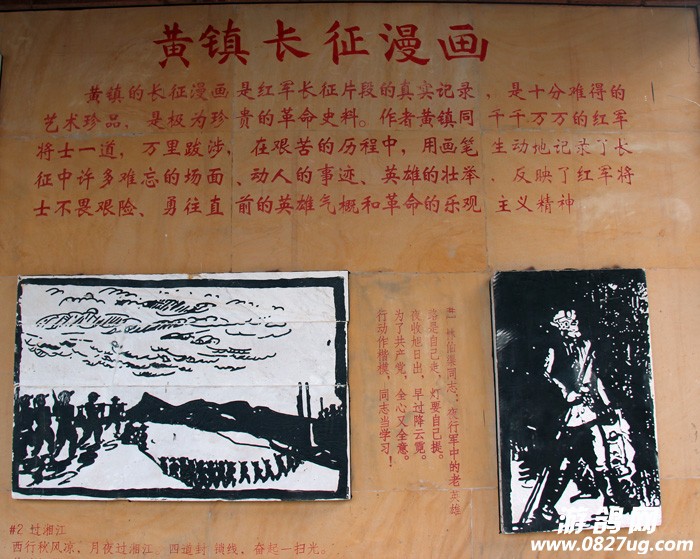 黄镇长征漫画
黄镇的长征漫画是红军长征片段的真实记录，是十分难得的
艺术珍品，是极为珍贵的革命史料。作者黄镇同千千万万的红军
将士一道，万里跋涉，在艰苦的历程中，用画笔生动地记录了长
征中许多难忘的场面、动人的事迹、英雄的壮举，反映了红军将
士不畏艰险、勇往直前的英雄气概和革命的乐观主义精神
#1 林伯渠同志：夜行军中的老英雄
路是自己走，灯要自己提。
夜收旭日出，早过降云霓。
为了共产党，全心又全意。
行动作楷模，同志当学习！
#2 过湘江
西行秋风凉，月夜过湘江。四道封锁线，奋起一扫光。
游鸽网
www.0827ug.com